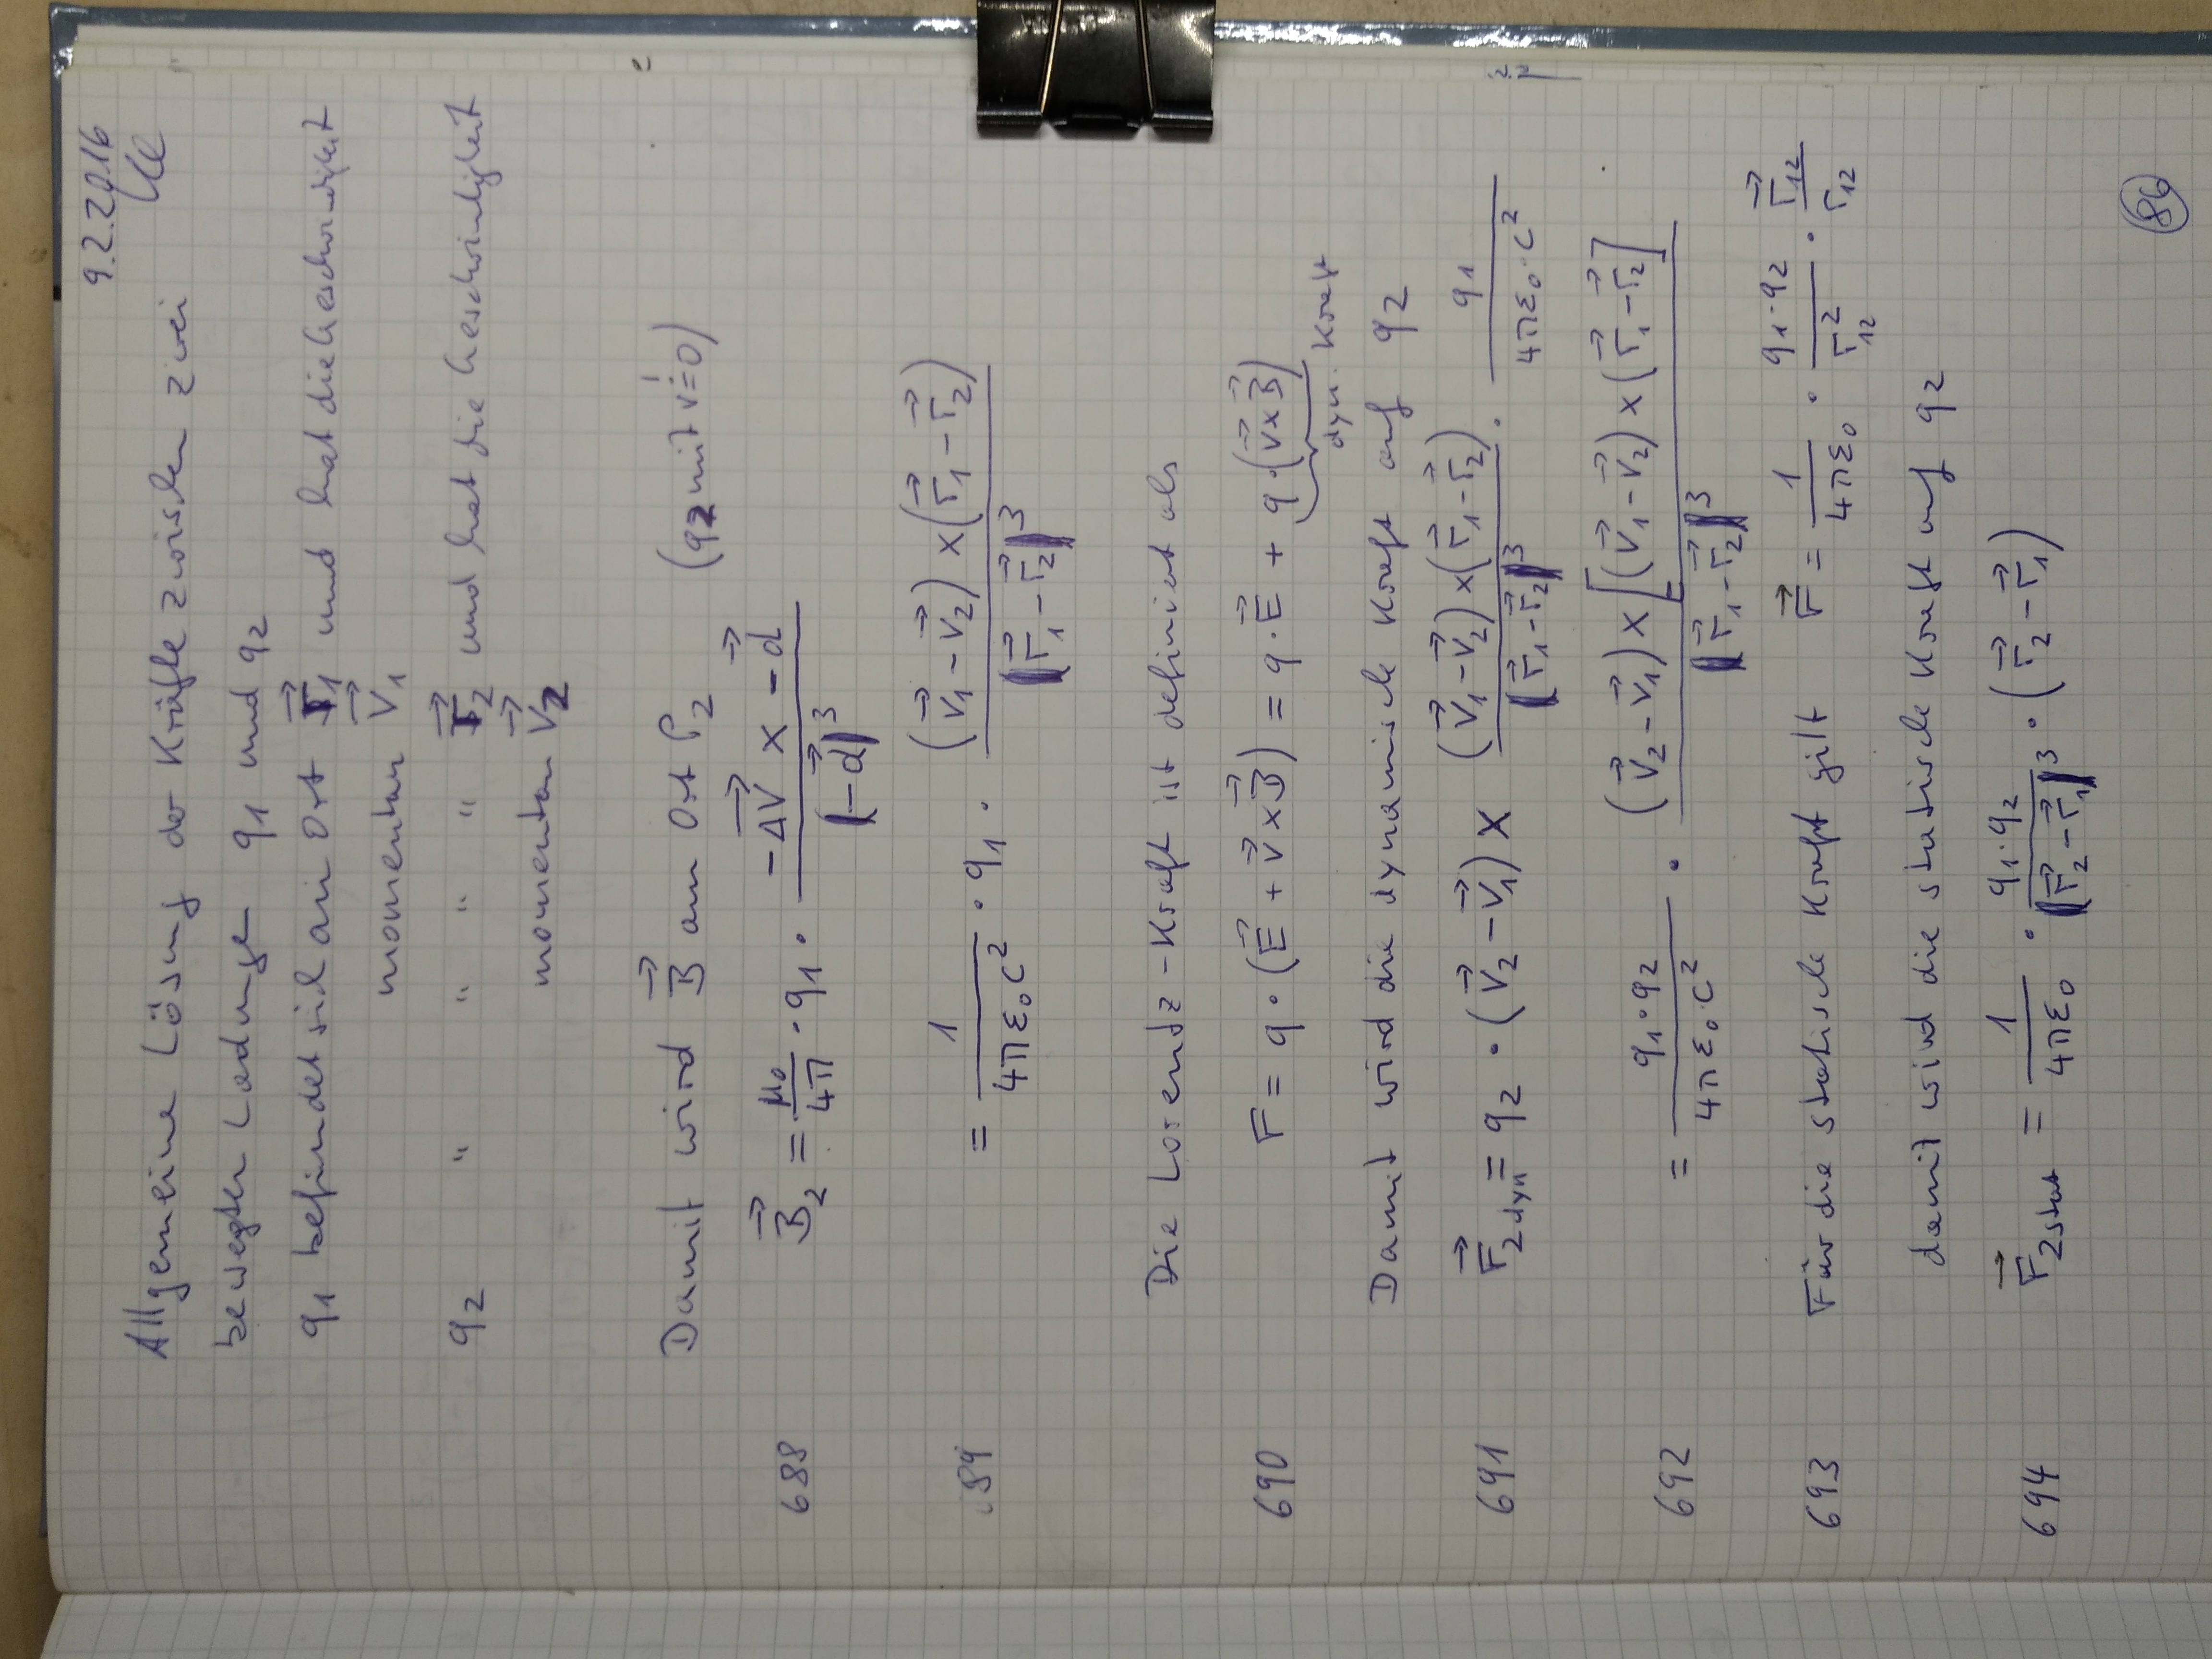 9.2.2016
Allgemeine Lösung der Kräfte zwischen zwei
bewegten Ladungen q1 und q2
q1 befindet sich am Ort r⃗1 und hat die Geschwindigkeit
momentan v⃗1
q2 " " " " r⃗2 und hat die Geschwindigkeit
momentan v⃗2
Damit wird B⃗ am Ort P2 (q2 mit v=0)
688 B⃗2 = μ0/4π · q1 · (−Δv⃗ × −d⃗)/|−d⃗|³
689 = 1/(4πε0c²) · q1 · ((v⃗1 − v⃗2) × (r⃗1 − r⃗2))/|r⃗1 − r⃗2|³
Die Lorendz-Kraft ist definiert als
690 F = q · (E⃗ + v⃗ × B⃗) = q · E⃗ + q · (v⃗ × B⃗)
dyn. Kraft
Damit wird die dynamische Kraft auf q2
691 F⃗2dyn = q2 · (v⃗2 − v⃗1) × ((v⃗1 − v⃗2) × (r⃗1 − r⃗2))/|r⃗1 − r⃗2|³ · q1/(4πε0·c²)
692 = q1·q2/(4πε0·c²) · ((v⃗2 − v⃗1) × [(v⃗1 − v⃗2) × (r⃗1 − r⃗2)])/|r⃗1 − r⃗2|³
693 Für die statische Kraft gilt F⃗ = 1/(4πε0) · q1·q2/r12² · r⃗12/r12
damit wird die statische Kraft auf q2
694 F⃗2stat = 1/(4πε0) · q1·q2/|r⃗2 − r⃗1|³ · (r⃗2 − r⃗1)
86